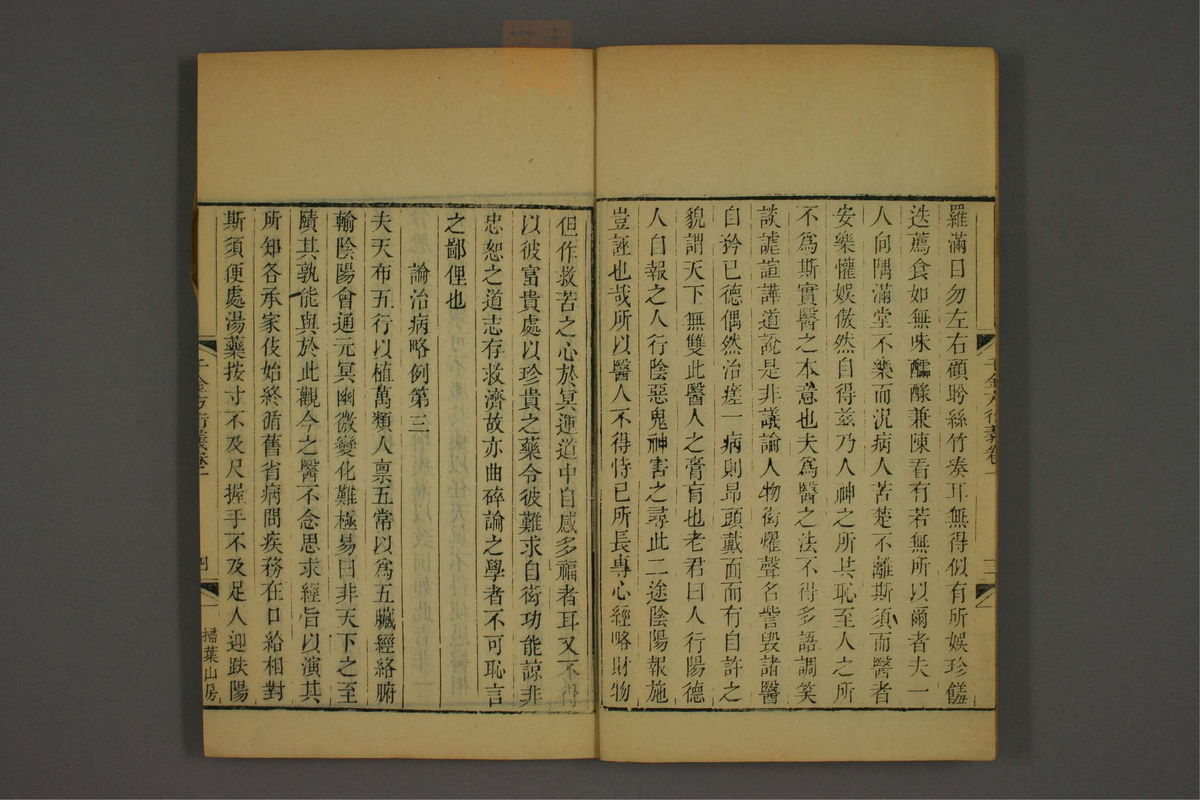 羅滿目勿左右顧聆絲竹奏耳無得似有所娛珍饈
迭薦食如無味醽醁兼陳看有若無所以爾者夫一
人向隅滿堂不樂而況病人苦楚不離斯須而醫者
安樂懽娛傲然自得茲乃人神之所共恥至人之所
不爲斯實醫之本意也夫爲醫之法不得多語調笑
談謔諠譁道說是非議論人物衒耀聲名訾毀諸醫
自矜已德偶然治瘥一病則昂頭戴面而有自許之
貌謂天下無雙此醫人之膏肓也老君曰人行陽德
人自報之人行陰惡鬼神害之尋此二途陰陽報施
豈誣也哉所以醫人不得恃已所長專心經略財物
千金方衍義卷一
三
但作救苦之心於冥運道中自感多福者耳又不得
以彼富貴處以珍貴之藥令彼難求自衒功能諒非
忠恕之道志存救濟故亦曲碎論之學者不可恥言
之鄙俚也
論治病略例第三
夫天布五行以植萬類人稟五常以爲五臟經絡腑
輸陰陽會通元冥幽微變化難極易曰非天下之至
賾其孰能與於此觀今之醫不念思求經旨以演其
所知各承家伎始終循舊省病問疾務在口給相對
斯須便處湯藥按寸不及尺握手不及足人迎趺陽
千金方衍義卷一
四
掃葉山房